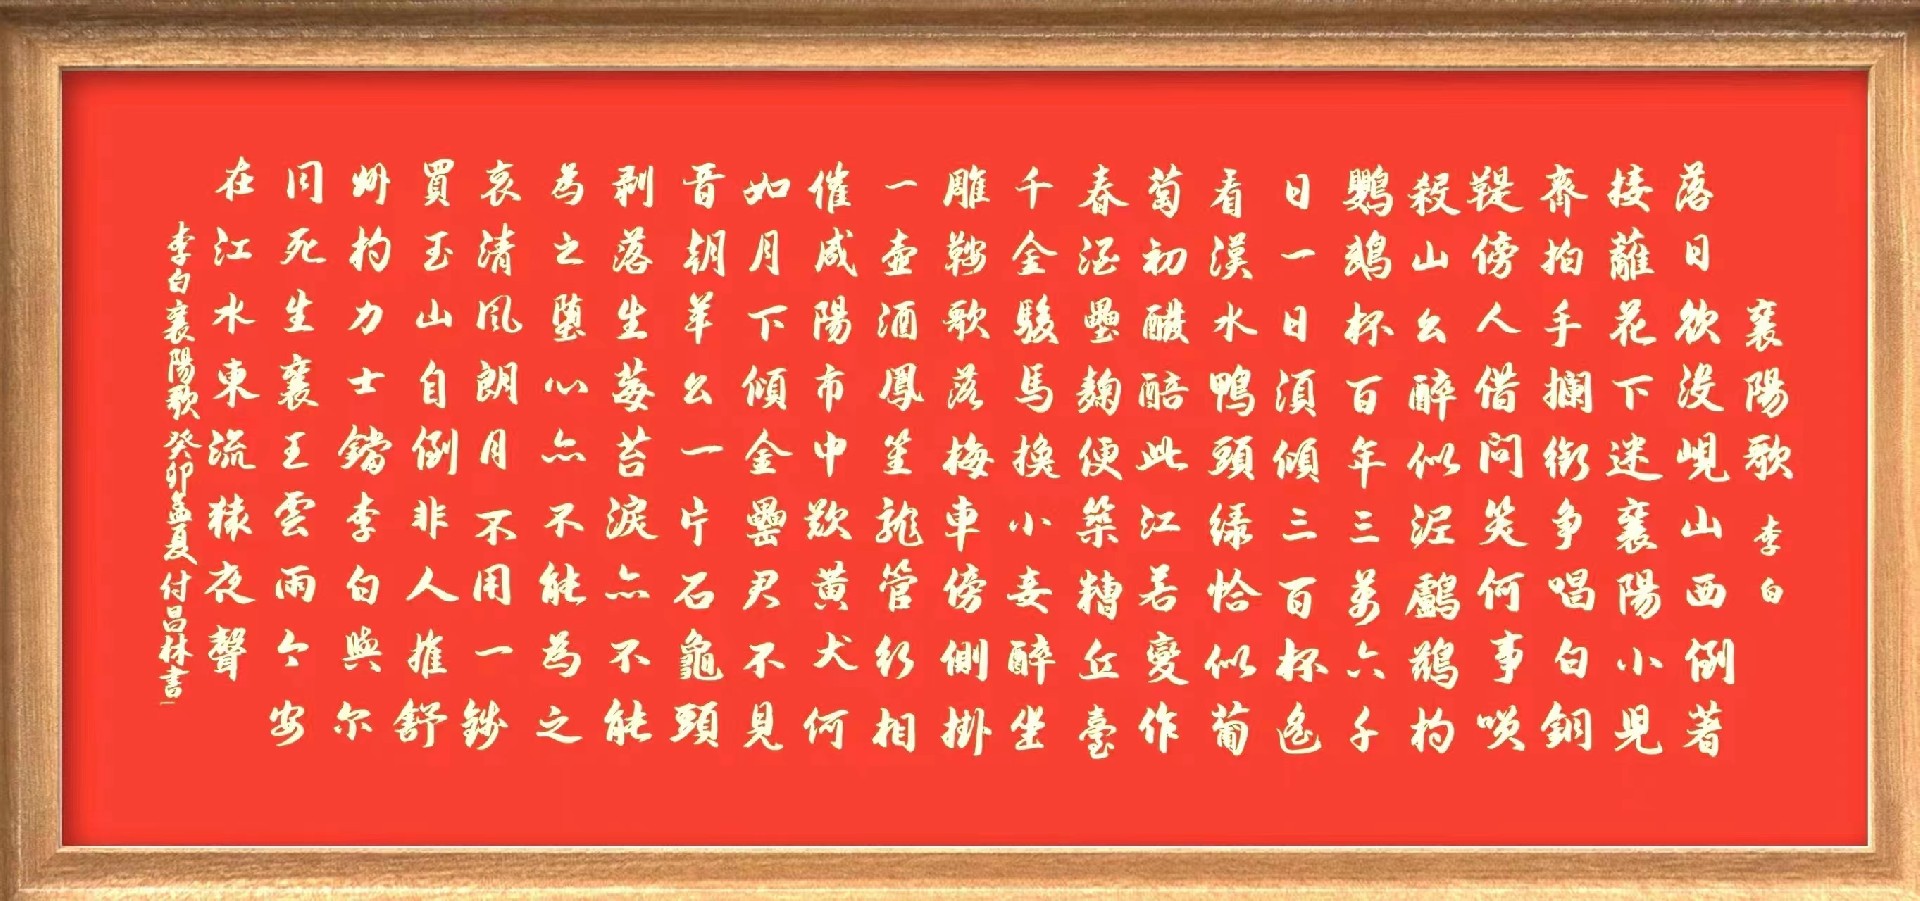 襄陽歌 李白
落日欲没峴山西倒著
接蘺花下迷襄陽小兒
齊拍手攔街争唱白銅
鞮傍人借問笑何事唉
殺山公醉似泥鸕鶿杓
鸚鵡杯百年三萬六千
日一日須傾三百杯遙
看漢水鴨頭綠恰似葡
萄初醱醅此江若變作
春酒壘麴便築糟丘臺
千金駿馬換小妾醉坐
雕鞍歌落梅車傍側掛
一壺酒鳳笙龍管行相
催咸陽市中歎黄犬何
如月下傾金罍君不見
晉朝羊公一片石龜頭
剥落生莓苔淚亦不能
為之墮心亦不能為之
哀清風朗月不用一錢
買玉山自倒非人推舒
州杓力士鐺李白與尔
同死生襄王雲雨今安
在江水東流猿夜聲
李白襄陽歌癸卯孟夏付昌林書